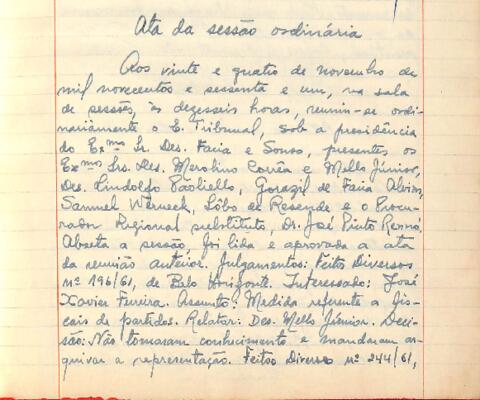 Ata da sessão ordinária
Aos vinte e quatro de novembro de
mil novecentos e sessenta e um, na sala
de sessões, às dezesseis horas, reuniu-se ordi-
nariamente o E. Tribunal, sob a presidência
do Exmo Sr. Des. Faria e Sousa, presentes os
Exmos Srs. Des. Merolino Corrêa e Mello Júnior,
Des. Lindolfo Paoliello, Gorazil de Faria Alvim,
Samuel Werneck, Lôbo de Resende e o Procu-
rador Regional substituto, dr. José Pinto Rennó.
Aberta a sessão, foi lida e aprovada a ata
da reunião anterior. Julgamentos: Feitos Diversos
nº 196/61, de Belo Horizonte. Interessado: José
Xavier Ferreira. Assunto: Medida referente a fis-
cais de partidos. Relator: Des. Mello Júnior. Deci-
são: Não tomaram conhecimento e mandaram ar-
quivar a representação. Feitos Diversos nº 244/61,